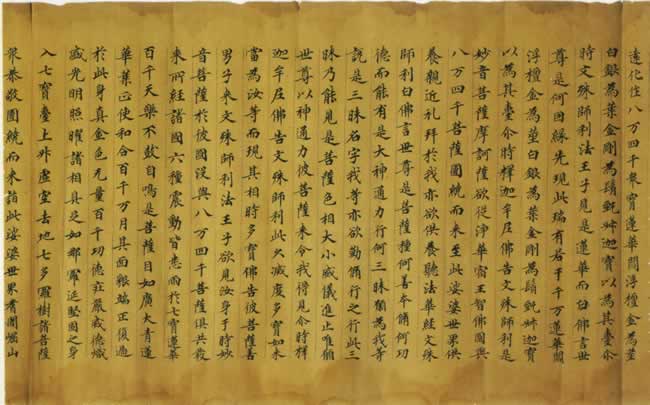 遠化作八万四千眾寶蓮華閻浮檀金為莖
白銀為葉金剛為鬚甄叔迦寶以為其臺尒
時文殊師利法王子見是蓮華而白佛言世
尊是何因緣先現此瑞有若干千万蓮華閻
浮檀金為莖白銀為葉金剛為鬚甄叔迦寶
以為其臺尒時釋迦牟尼佛告文殊師利是
妙音菩薩摩訶薩欲從淨華宿王智佛國與
八万四千菩薩圍繞而來至此娑婆世界供
養親近礼拜於我亦欲供養聽法華經文殊
師利白佛言世尊是菩薩種何善本脩何功
德而能有是大神通力行何三昧願為我等
說是三昧名字我等亦欲勤脩行之行此三
昧乃能見是菩薩色相大小威儀進止唯願
世尊以神通力彼菩薩來令我得見尒時釋
迦牟尼佛告文殊師利此久滅度多寶如來
當為汝等而現其相時多寶佛告彼菩薩善
男子來文殊師利法王子欲見汝身于時妙
音菩薩於彼國沒與八万四千菩薩俱共發
來所經諸國六種震動皆悉雨於七寶蓮華
百千天樂不鼓自鳴是菩薩目如廣大青蓮
華葉正使和合百千万月其面貌端正復過
於此身真金色无量百千功德莊嚴威德熾
盛光明照曜諸相具足如那羅延堅固之身
入七寶臺上升虛空去地七多羅樹諸菩薩
眾恭敬圍繞而來詣此娑婆世界耆闍崛山